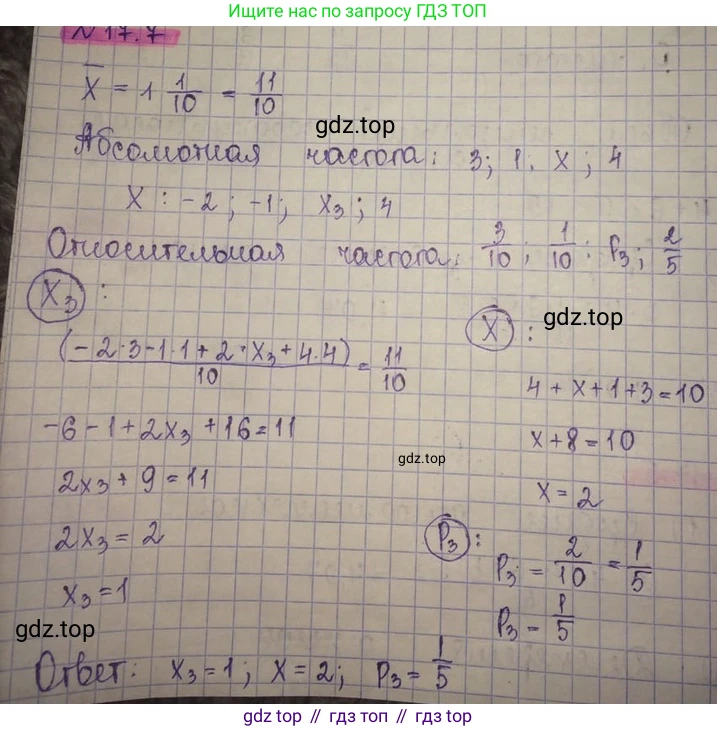 Ищите нас по запросу ГДЗ ТОП
№ 17.7
X̄ = 1 1/10 = 11/10
gdz.top
Абсолютная частота: 3; 1; x; 4
X : -2; -1; x₃; 4
Относительная частота: 3/10; 1/10; P₃; 2/5
X₃ :
gdz.top
X :
(-2·3-1·1+2·x₃+4·4)/10 = 11/10
4+x+1+3=10
-6-1+2x₃+16=11
x+8=10
gdz.top
2x₃+9=11
x=2
2x₃=2
P₃ :
P₃ = 2/10 = 1/5
x₃=1
P₃ = 1/5
gdz.top
Ответ: x₃=1; x=2; P₃=1/5
gdz top // гдз топ // gdz.top